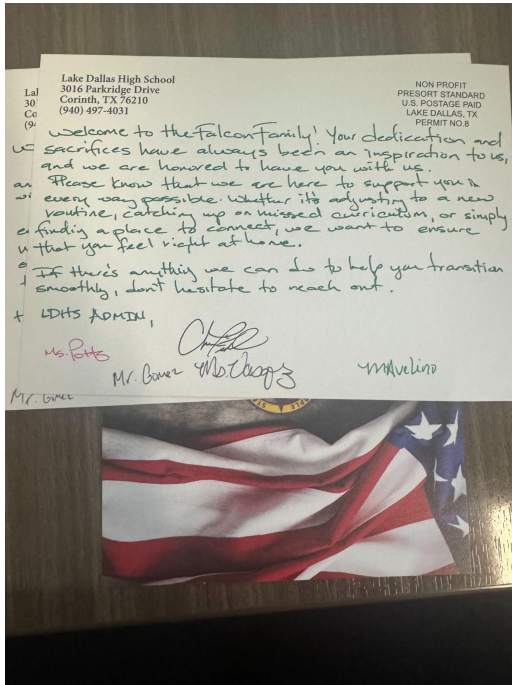 Lake Dallas High School
3016 Parkridge Drive
Corinth, TX 76210
(940) 497-4031
NON PROFIT
PRESORT STANDARD
U.S. POSTAGE PAID
LAKE DALLAS, TX
PERMIT NO.8
Welcome to the Falcon Family! Your dedication and
sacrifices have always been an inspiration to us,
and we are honored to have you with us.
Please know that we are here to support you in
every way possible. Whether it's adjusting to a new
routine, catching up on missed curriculum, or simply
finding a place to connect, we want to ensure
that you feel right at home.
If there's anything we can do to help you transition
smoothly, don't hesitate to reach out.
LDHS ADMIN,
Ms. Potts
Mr. Gomez
Ms Vasqz
MAvelino
Mr. Gomez